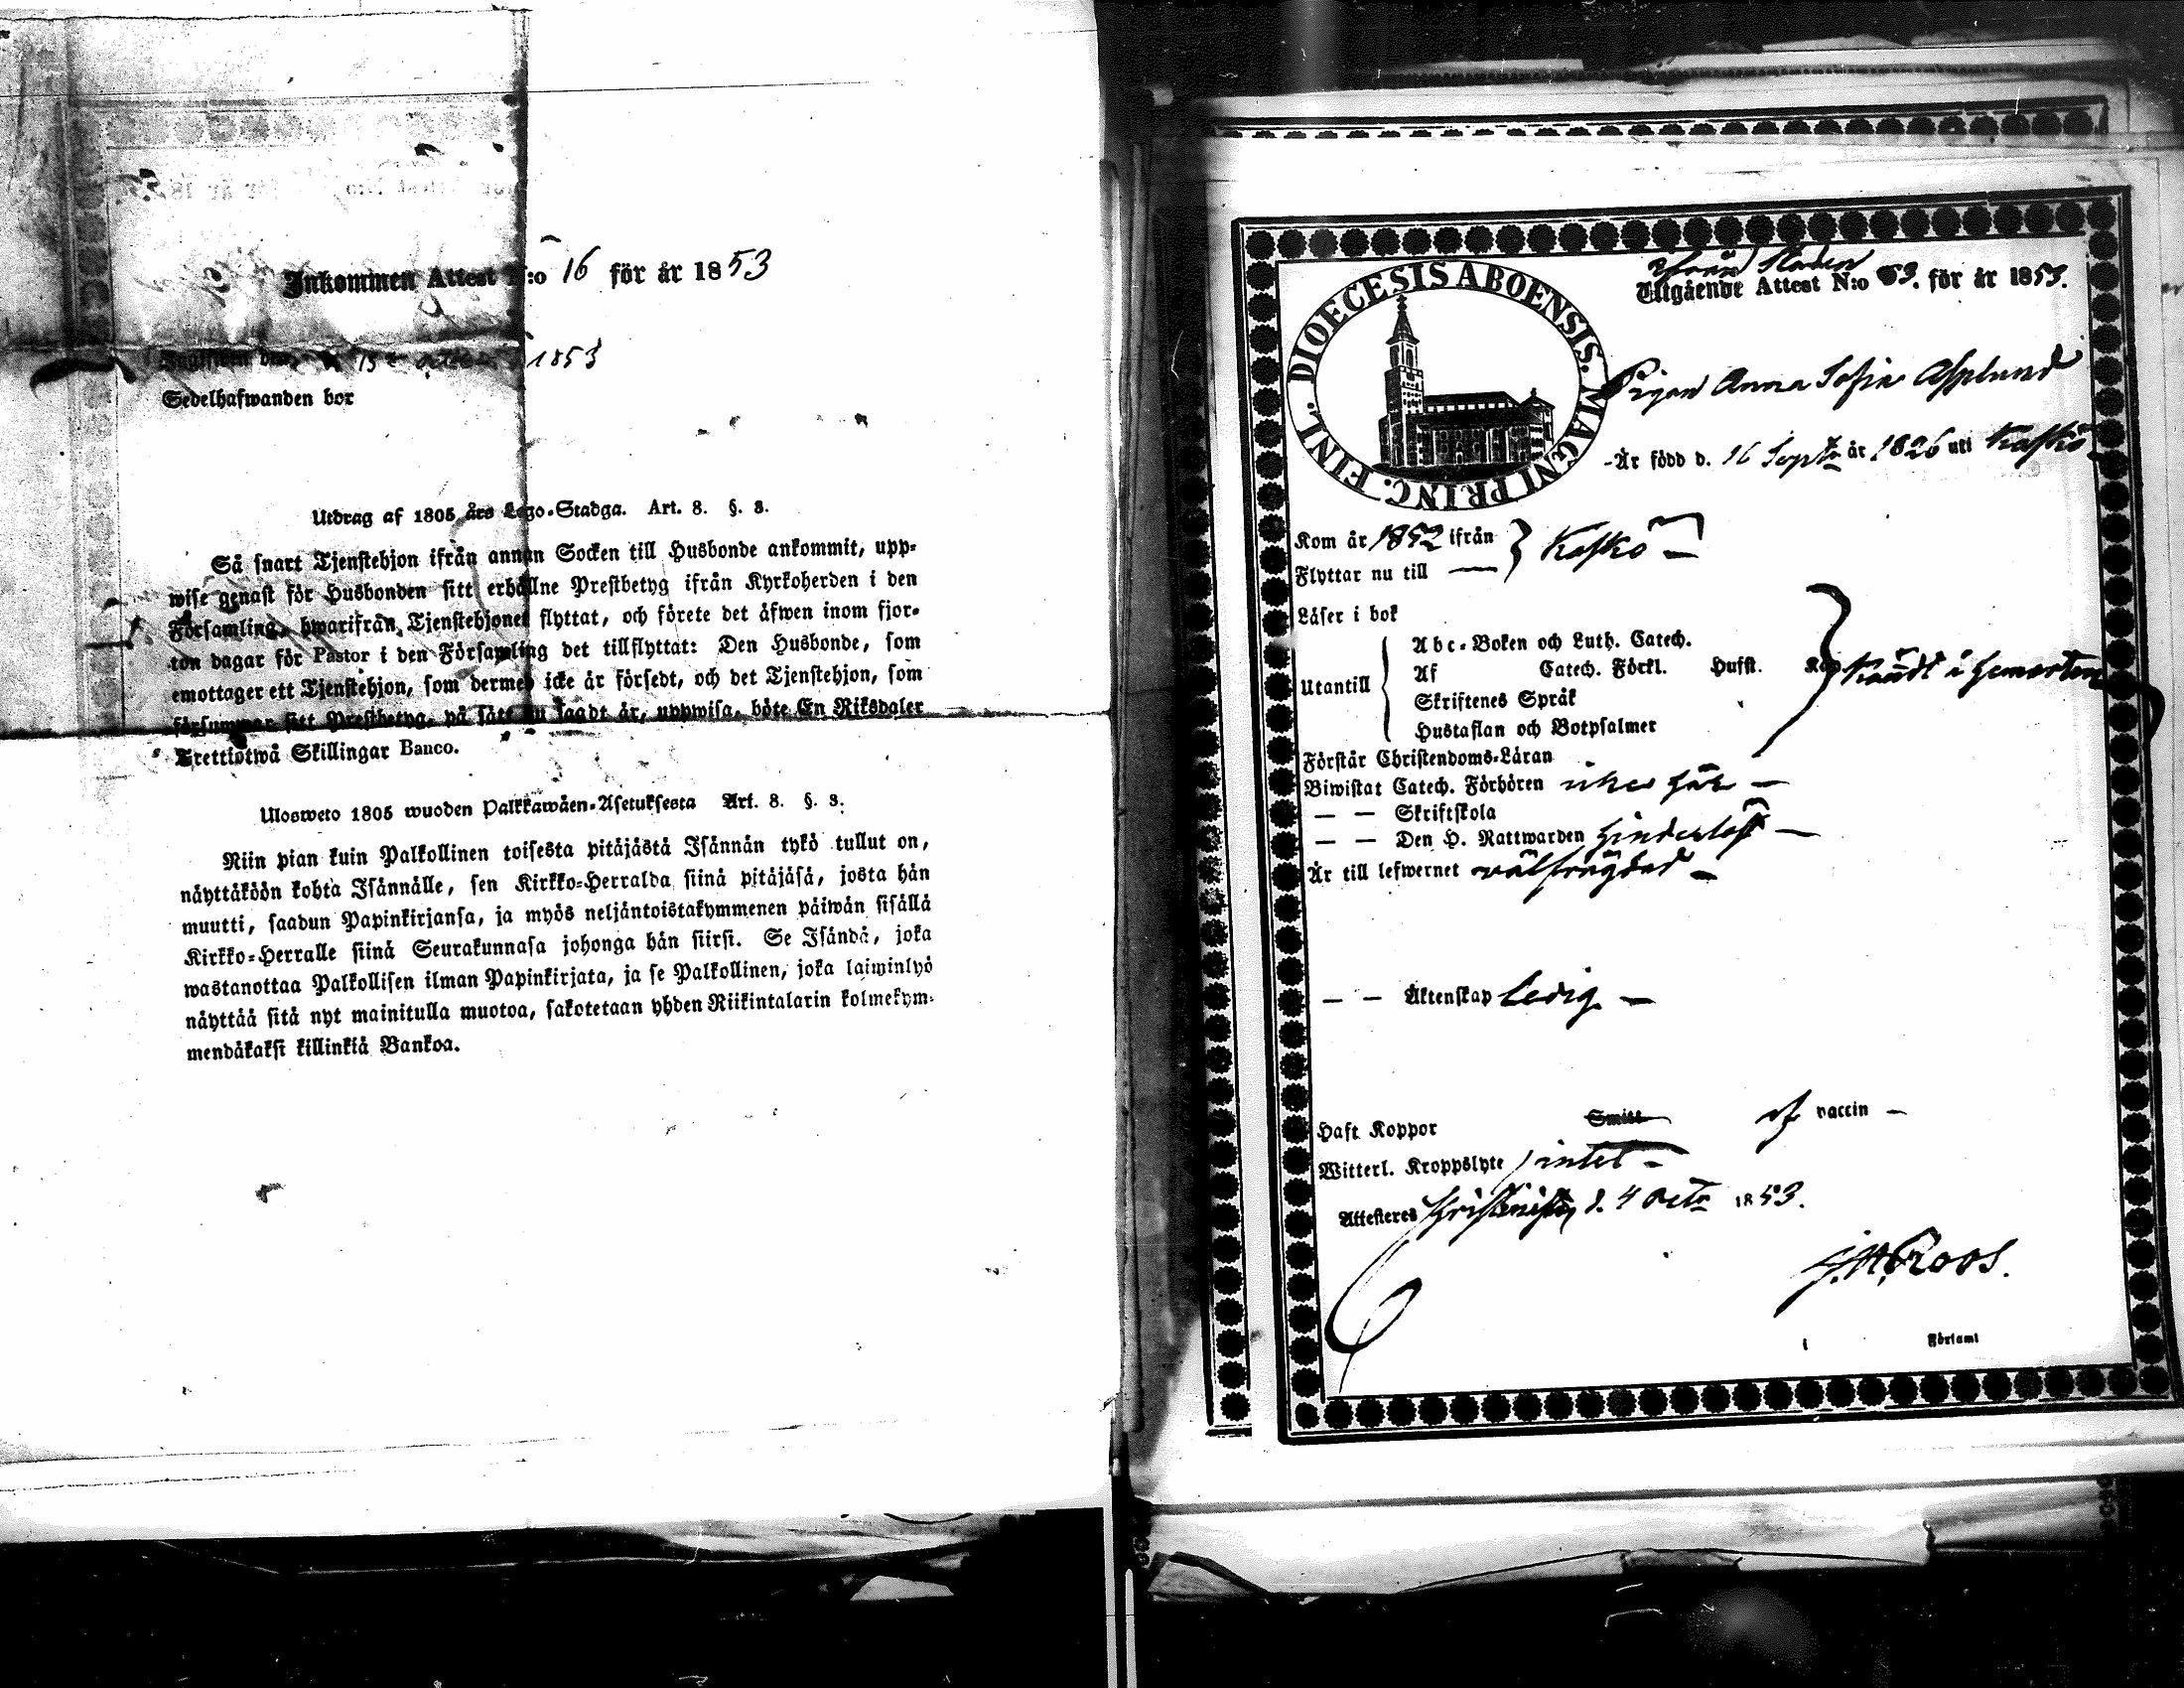 Inkommen Attest N:o 16 för år 1853
15 1853
Sedelhafwanden bor
Utdrag af 1805 års Lego-Stadga. Art. 8. §. 3.
Så snart Tjenstehjon ifrån annan Socken till Husbonde ankommit, upp-
wise genast för Husbonden sitt erhållne Prestbetyg ifrån Kyrkoherden i den
Församling, hwarifrån Tjenstehjonet flyttat, och förete det äfwen inom fjor-
ton dagar för Pastor i den Församling det tillflyttat: Den Husbonde, som
emottager ett Tjenstehjon, som dermed icke är försedt, och det Tjenstehjon, som
försummar sitt Prestbetyg, på sätt nu sagdt är, uppwisa, böte En Riksdaler
Trettiotwå Skillingar Banco.
Ulosweto 1805 wuoden Palkkawäen-Asetuksesta Art. 8. §. 3.
Niin pian kuin Palkollinen toisesta pitäjästä Isännän tykö tullut on,
näyttäköön kohta Isännälle, sen Kirkko-Herralda siinä pitäjäsä, josta hän
muutti, saadun Papinkirjansa, ja myös neljäntoistakymmenen päiwän sisällä
Kirkko-Herralle siinä Seurakunnasa johonga hän siirsi. Se Isändä, joka
wastanottaa Palkollisen ilman Papinkirjata, ja se Palkollinen, joka laiminlyö
näyttää sitä nyt mainitulla muotoa, sakotetaan yhden Riikintalarin kolmekym-
mendäkaksi killinkiä Bankoa.
DIOECESIS ABOENSIS. MAGNI PRINC. FINL.
Ifrån Staden
Utgående Attest N:o 53. för år 1853.
Pigan Anna Sofia Asplund
Är född d. 16 Septr år 1826 uti Kaskö
Kom år 1852 ifrån
Flyttar nu till — } Kaskö —
Läser i bok
Utantill
Abc-Boken och Luth. Catech.
Af Catech. Förkl. Husfl.
Skriftenes Språk
Hustaflan och Botpsalmer
Förstår Christendoms-Läran
Biwistat Catech. Förhören icke här —
— — Skriftskola
— — Den H. Nattwarden hinderlöst —
Är till lefwernet wälfrägdad —
— — Äktenskap Ledig —
Haft Koppor Smitt af vaccin —
Witterl. Kroppslyte intet —
Attesteras d. 4 Octr 1853.
Roos.
i Församl